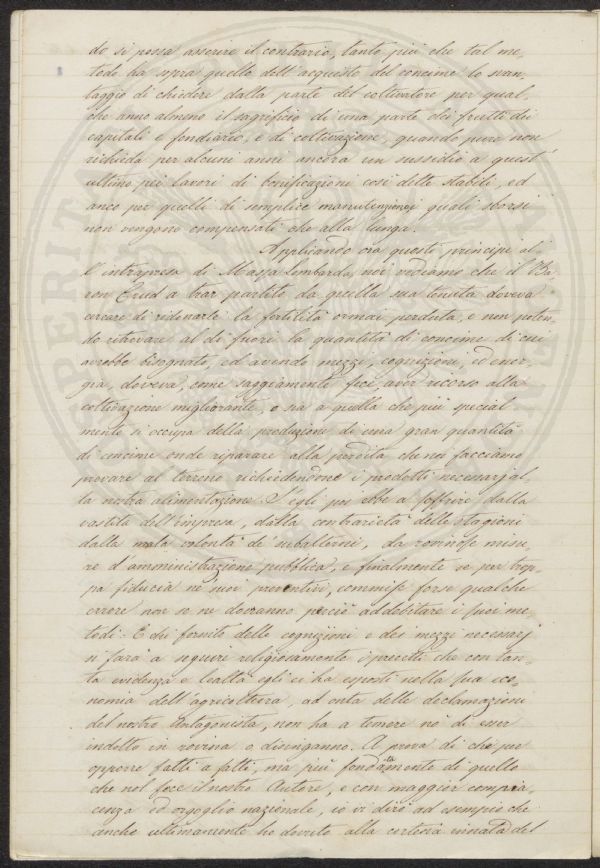 do si possa asserire il contrario, tanto più che tal me-
todo ha sopra quello dell'acquisto del concime lo svan-
taggio di chiedere dalla parte del coltivatore per qual-
che anno almeno il sagrificio di una parte dei frutti dei
capitali e fondiario, e di coltivazione, quando pure non
richieda per alcuni anni ancora un sussidio a quest'
ultimo pei lavori di bonificazioni così dette stabili, ed
anco per quelli di semplice manutenzione, i quali sborsi
non vengono compensati che alla lunga.
Applicando ora questi principi al-
l'intrapresa di Massa Lombarda, noi vediamo che il Ba-
ron Crud a trar partito da quella sua tenuta doveva
cercare di ridonarle la fertilità ormai perduta, e non poten-
do ritrovare al di fuori la quantità di concime di cui
avrebbe bisognato, ed avendo mezzi, cognizioni, ed ener-
gia, doveva, come saggiamente fece, aver ricorso alla
coltivazione migliorante, o sia a quella che più special-
mente si occupa della produzione di una gran quantità
di concime onde riparare alla perdita che noi facciamo
provare al terreno richiedendone i prodotti necessarj al-
la nostra alimentazione. S'egli poi ebbe a soffrire dalla
vastità dell'impresa, dalla contrarietà delle stagioni
dalla mala volontà de' subalterni, da rovinose misu-
re d'amministrazione pubblica, e finalmente se per trop-
pa fiducia ne' suoi preventivi, commise forse qualche
errore non se ne dovranno perciò addebitare i suoi me-
todi. E chi fornito delle cognizioni e dei mezzi necessarj
si farà a seguire religiosamente i precetti che con tan-
ta evidenza e lealtà egli ci ha esposti nella sua eco-
nomia dell'agricoltura, ad onta delle declamazioni
del nostro Antagonista, non ha a temere nè di esser
indotto in rovina o disinganno. A prova di che per
opporre fatti a fatti, ma più fondatamente di quello
che nol fece il nostro Autore, e con maggior compia-
cenza ed orgoglio nazionale, io vi dirò ad esempio che
anche ultimamente ho dovuto alla cortesia innata del